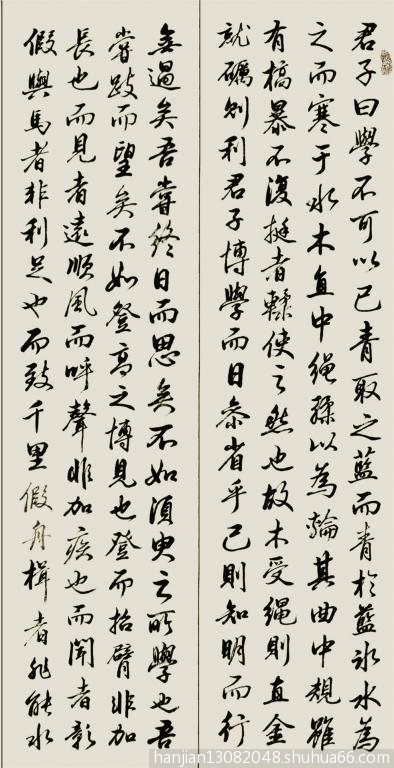 君子曰學不可以已青取之藍而青於藍冰水為
之而寒于水木直中绳輮以為輪其曲中規雖
有槁暴不復挺者輮使之然也故木受绳則直金
就礪则利君子博學而日参省乎己則知明而行
無過矣吾嘗终日而思矣不如須臾之所學也吾
嘗跂而望矣不如登高之博見也登而招臂非加
長也而見者遠順風而呼聲非加疾也而聞者彰
假與馬者非利足也而致千里假舟楫者非能水
hanjian13082048.shuhua66.com